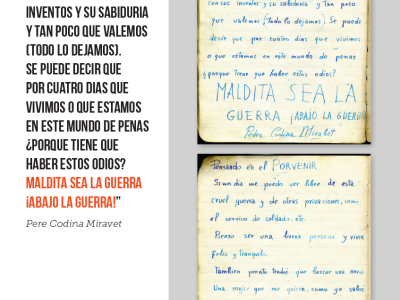 INVENTOS Y SU SABIDURIA
Y TAN POCO QUE VALEMOS
(TODO LO DEJAMOS).
SE PUEDE DECIR QUE
POR CUATRO DIAS QUE
VIVIMOS O QUE ESTAMOS
EN ESTE MUNDO DE PENAS
¿PORQUE TIENE QUE
HABER ESTOS ODIOS?
MALDITA SEA LA GUERRA
¡ABAJO LA GUERRA!”
Pere Codina Miravet
con sus inventos y su sabiduria y Tan poco
que valemos (todo lo dejamos). Se puede
decir que por cuatro dias que vivimos
o que estamos en este mundo de penas
¿porque tiene que haber estos odios?
MALDITA SEA LA
GUERRA ¡ABAJO LA GUERRA
Pedro Codina Mirabet
Pensando en el PORVENIR
Si un dia me puedo ver libre de esta
cruel guerra y de otras privaciones, como
el servicio de soldado. etc.
Pienso ser una buena persona y vivir
feliz y tranquilo.
Tambien pronto tendré que buscar una novia
Una mujer que me quiera, como yo sabré